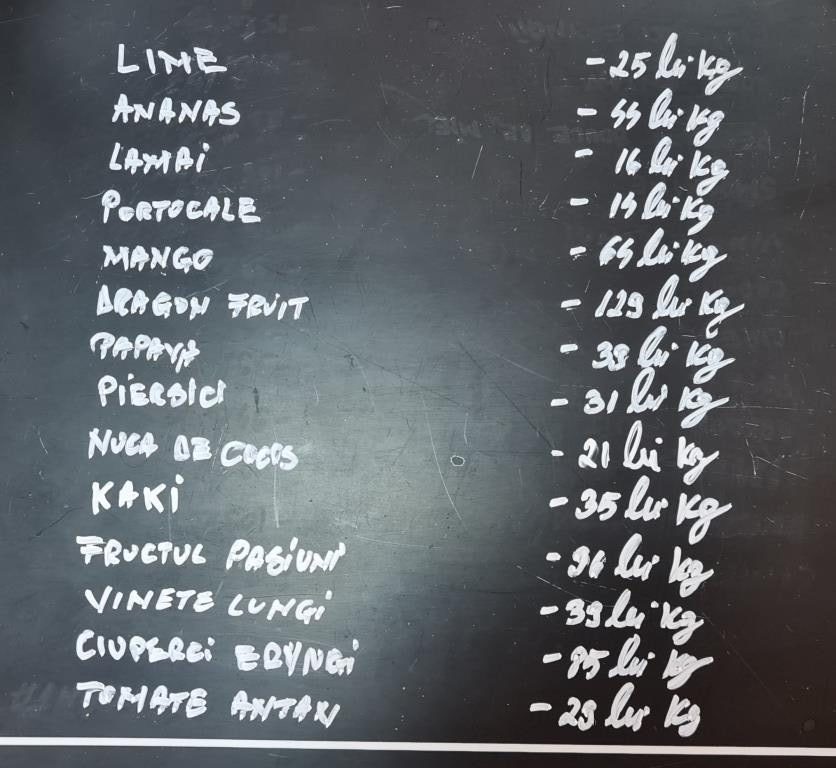 LIME - 25 lei kg
ANANAS - 44 lei kg
LAMAI - 16 lei kg
PORTOCALE - 14 lei kg
MANGO - 64 lei kg
DRAGON FRUIT - 129 lei kg
PAPAYA - 39 lei kg
PIERSICI - 31 lei kg
NUCA DE COCOS - 21 lei kg
KAKI - 35 lei kg
FRUCTUL PASIUNI - 96 lei kg
VINETE LUNGI - 39 lei kg
CIUPERCI ERYNGI - 85 lei kg
TOMATE - 29 lei kg